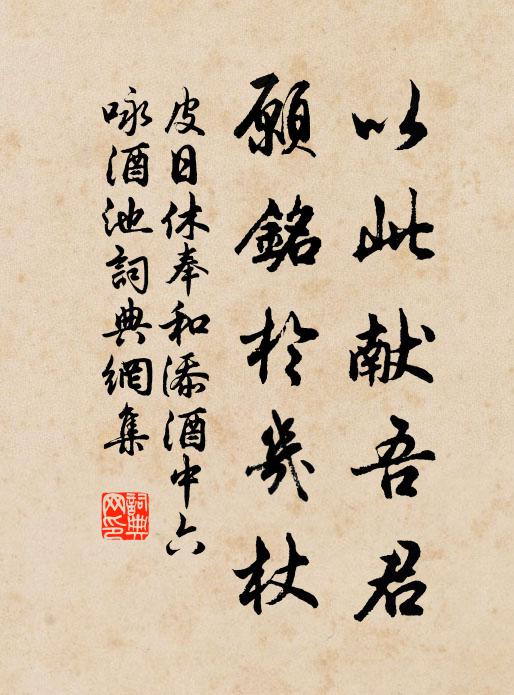 以此献吾君
願銘於幾杖
皮日休奉和添酒中六
咏酒池詞典網集
詞典网印